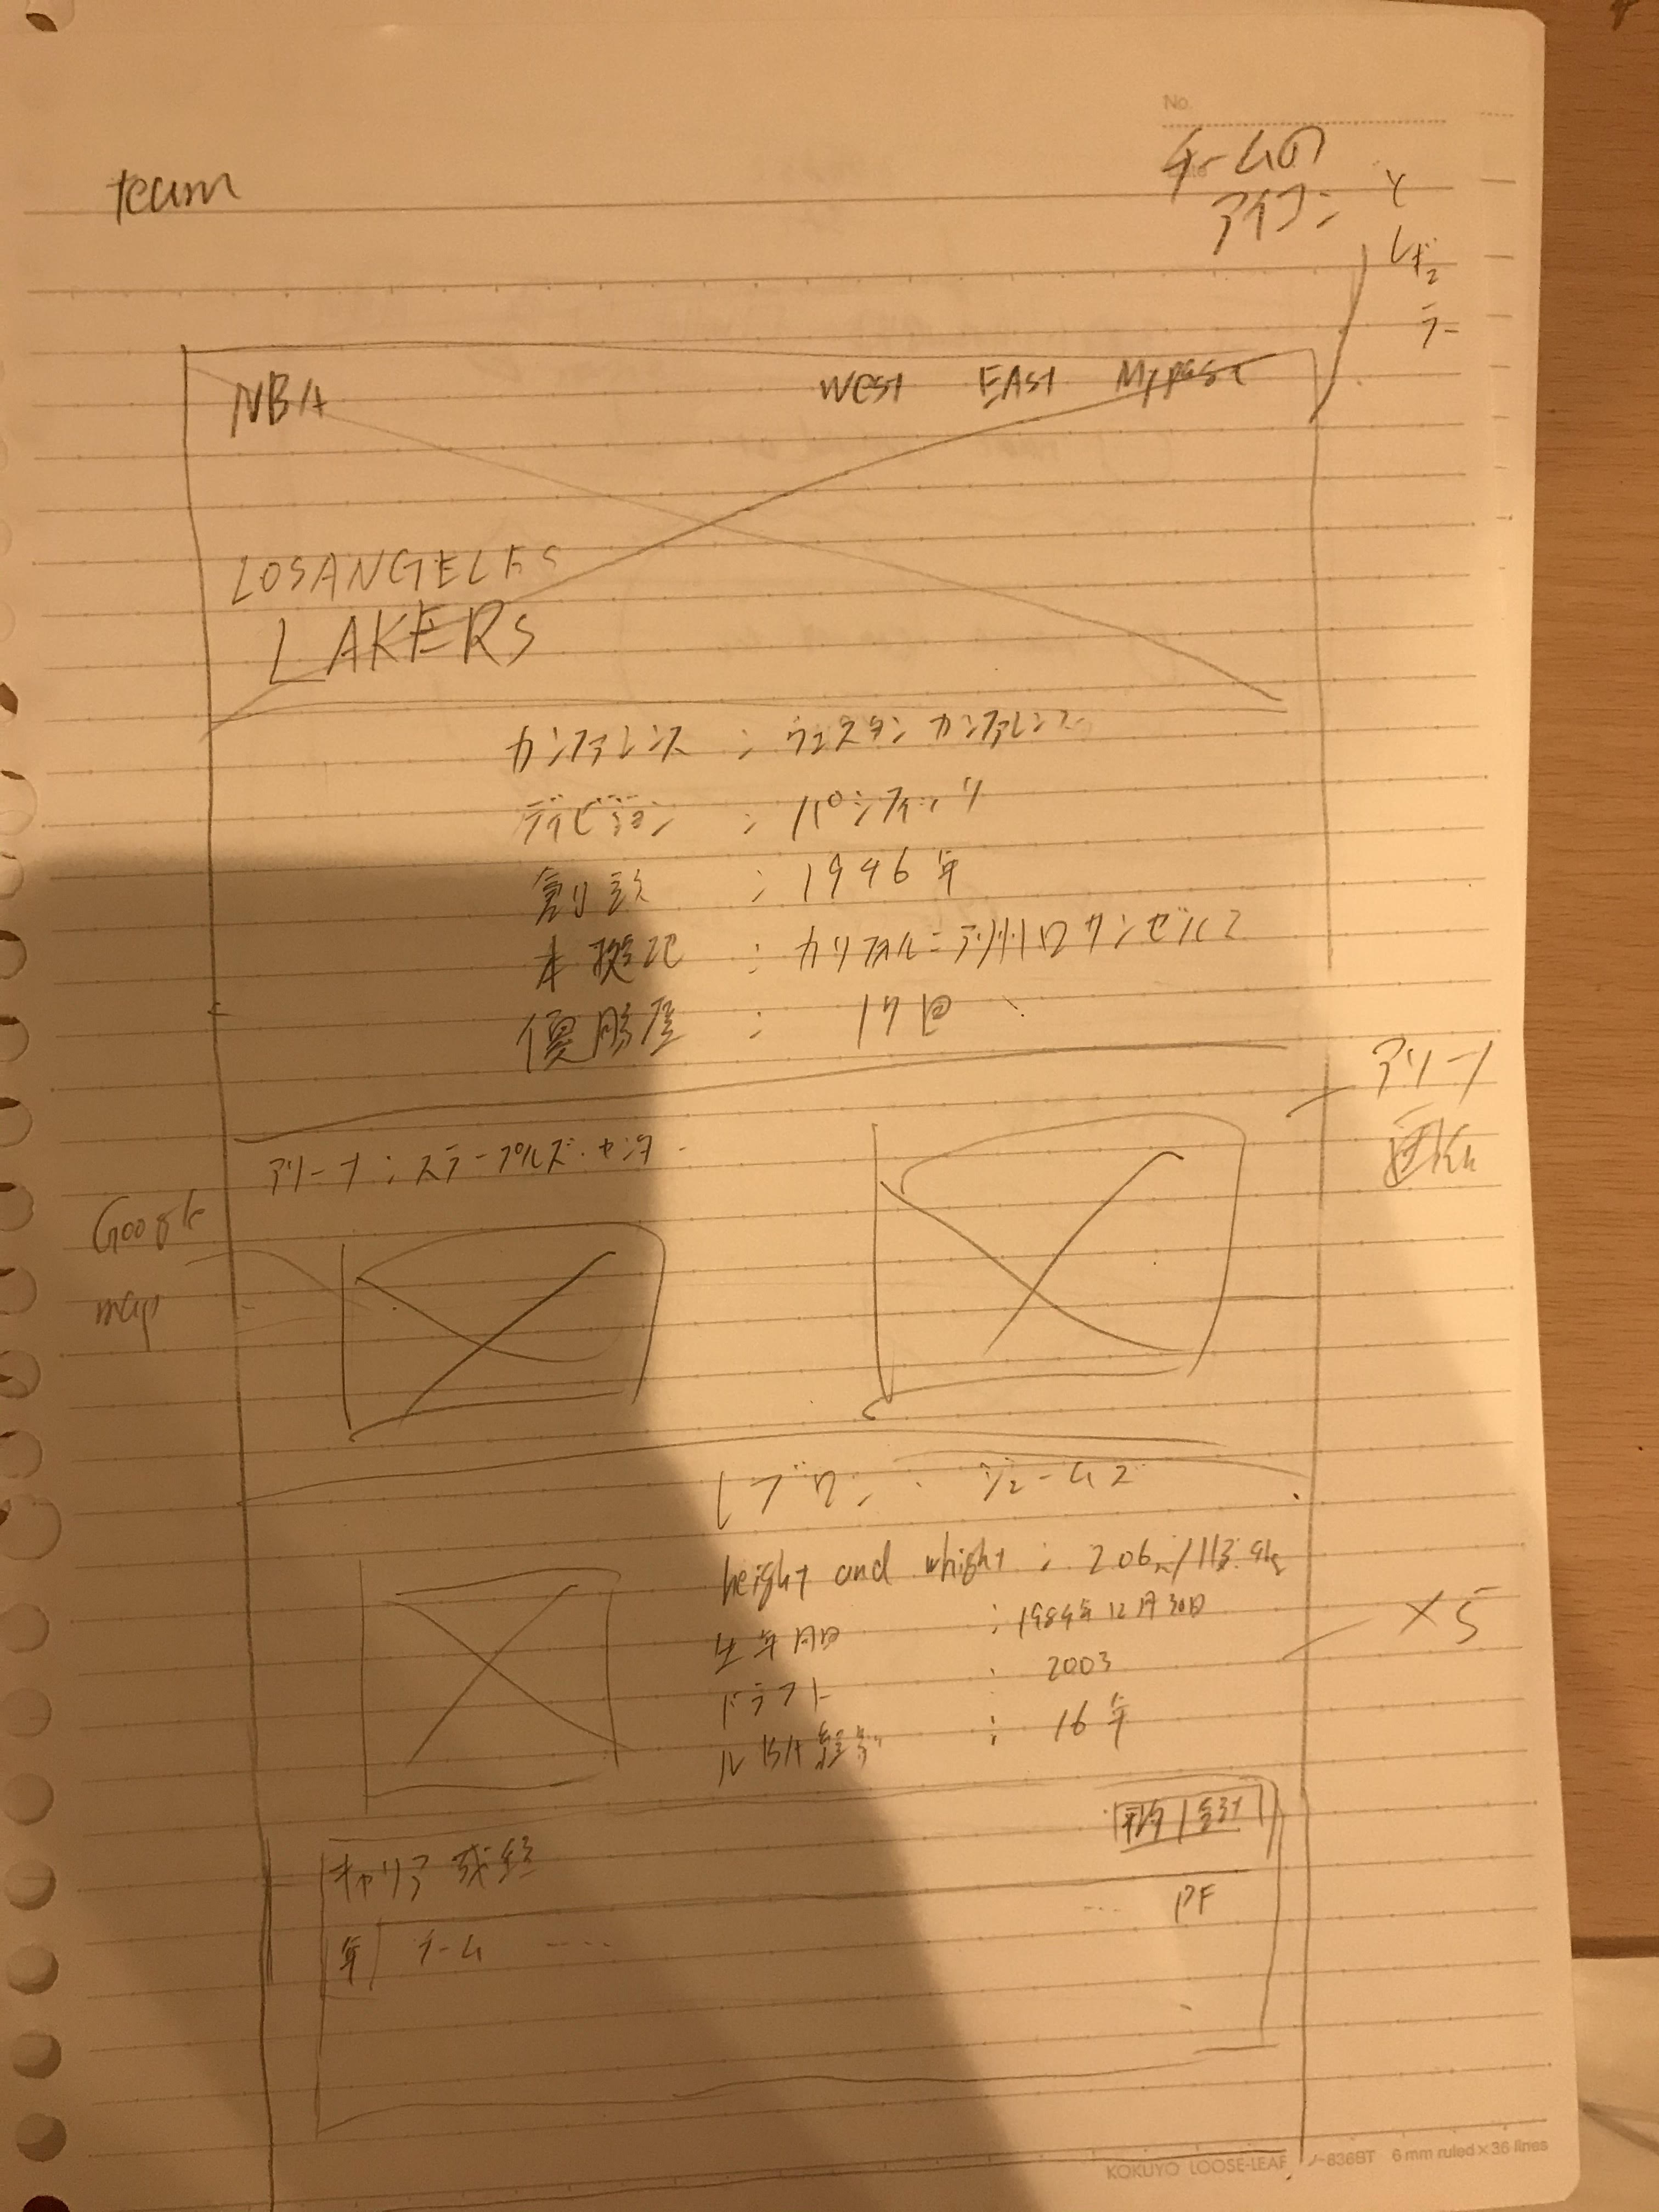 No.
team
チームの
アイコン と
レギュ
ラー
NBA WEST EAST Mypage
LOSANGELES
LAKERS
カンファレンス : ウェスタン カンファレンス
ディビジョン : パシフィック
創設 : 1946年
本拠地 : カリフォルニア州ロサンゼルス
優勝歴 : 17回
アリーナ
アリーナ : ステープルズ・センター
Google
map
レブロン・ジェームズ
height and whight : 2.06m/113.4kg
生年月日 : 1984年12月30日
×5
ドラフト : 2003
NBA経歴 : 16年
平均 | 合計
キャリア成績
年 チーム .... ... PF
KOKUYO LOOSE-LEAF ノ-836BT 6 mm ruled×36 lines